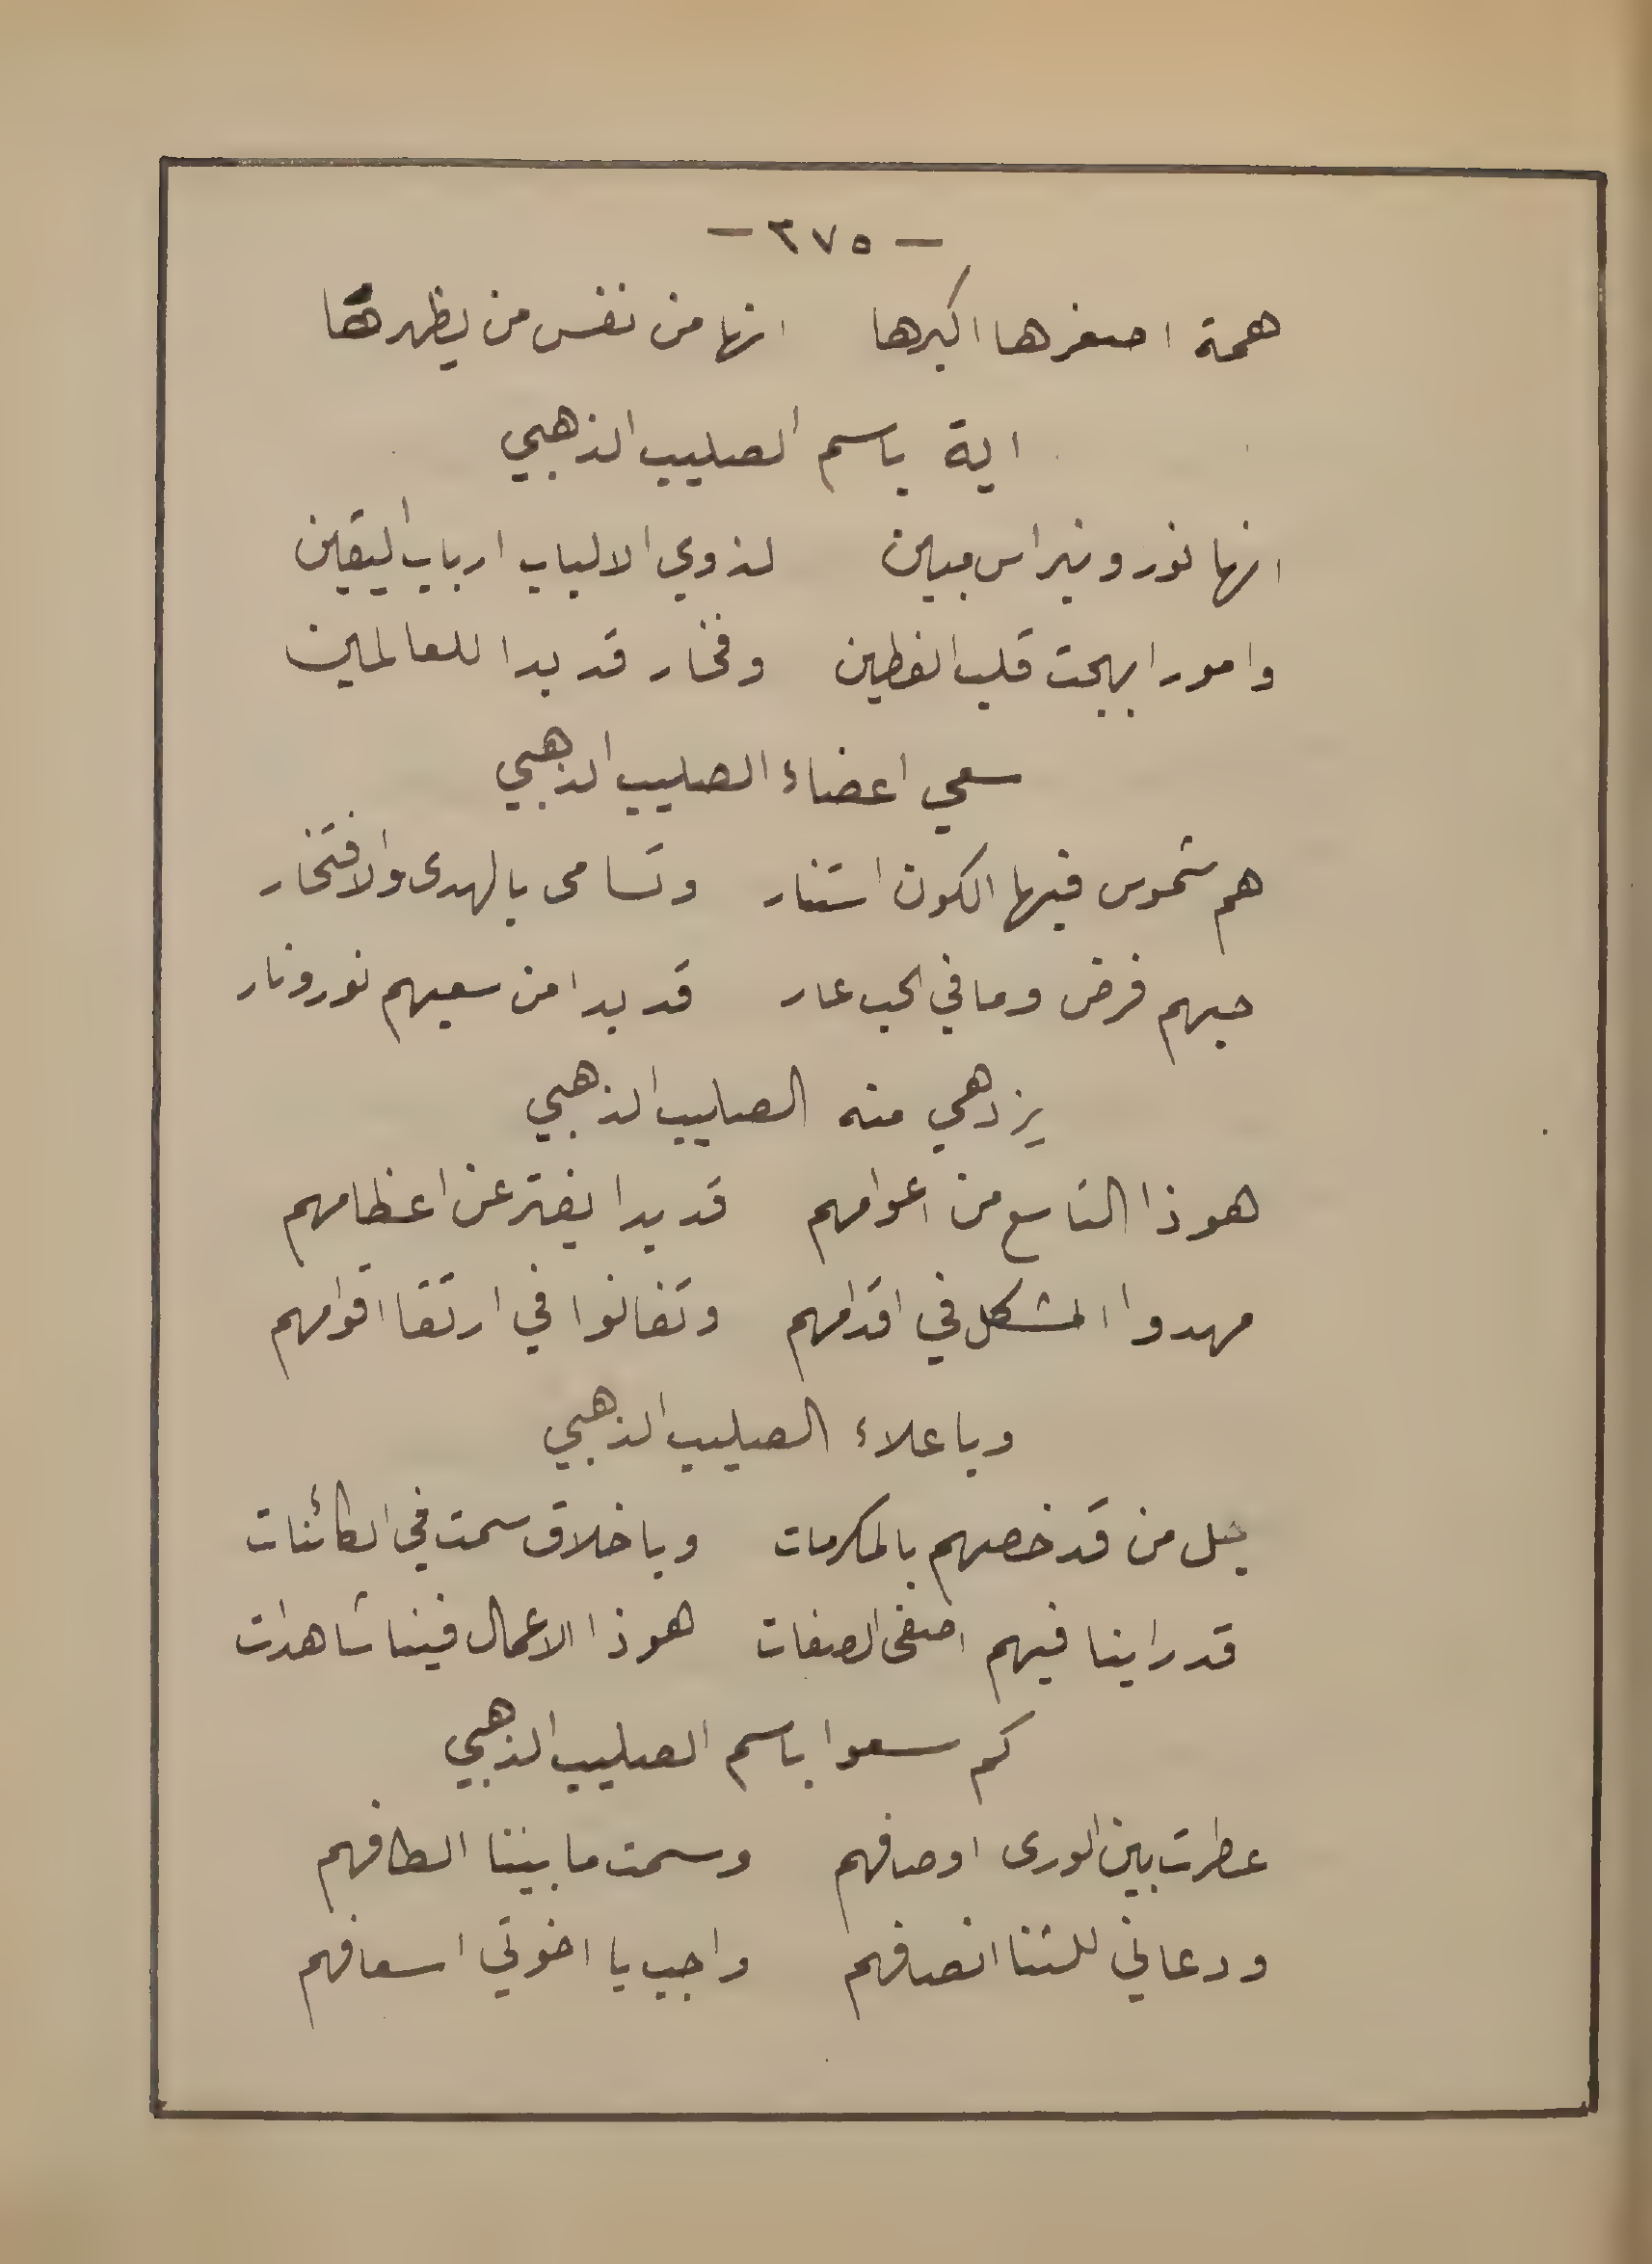 - ٢٧٥ -
همة اصغرها اكبرها انها من نفس من يظهرها
اية باسم الصليب الذهبي
انها نور ونبراس مبين لذوي الالباب ارباب اليقين
وامور ابهجت قلب الفطين وفخار قد بدا للعالمين
سعي اعضاء الصليب الذهبي
هم شموس فيها الكون استنار وتسامى بالهدى والافتخار
حبهم فرض وما في الحب عار قد بدا من سعيهم نور ونار
يزدهي منه الصليب الذهبي
هوذا التاسع من اعوامهم قد بدا يفتر عن اعظامهم
مهدوا المشكل في اقدامهم وتفانوا في ارتقا اقوامهم
وباعلاء الصليب الذهبي
جل من قد خصهم بالمكرمات وباخلاق سمت في الكائنات
قد راينا فيهم اصفى الصفات هوذا الاعمال فينا شاهدات
كم سعوا باسم الصليب الذهبي
عطرت بين الورى اوصافهم وسمت ما بيننا الطافهم
ودعاني للثنا انصافهم واجب يا اخوتي اسعافهم